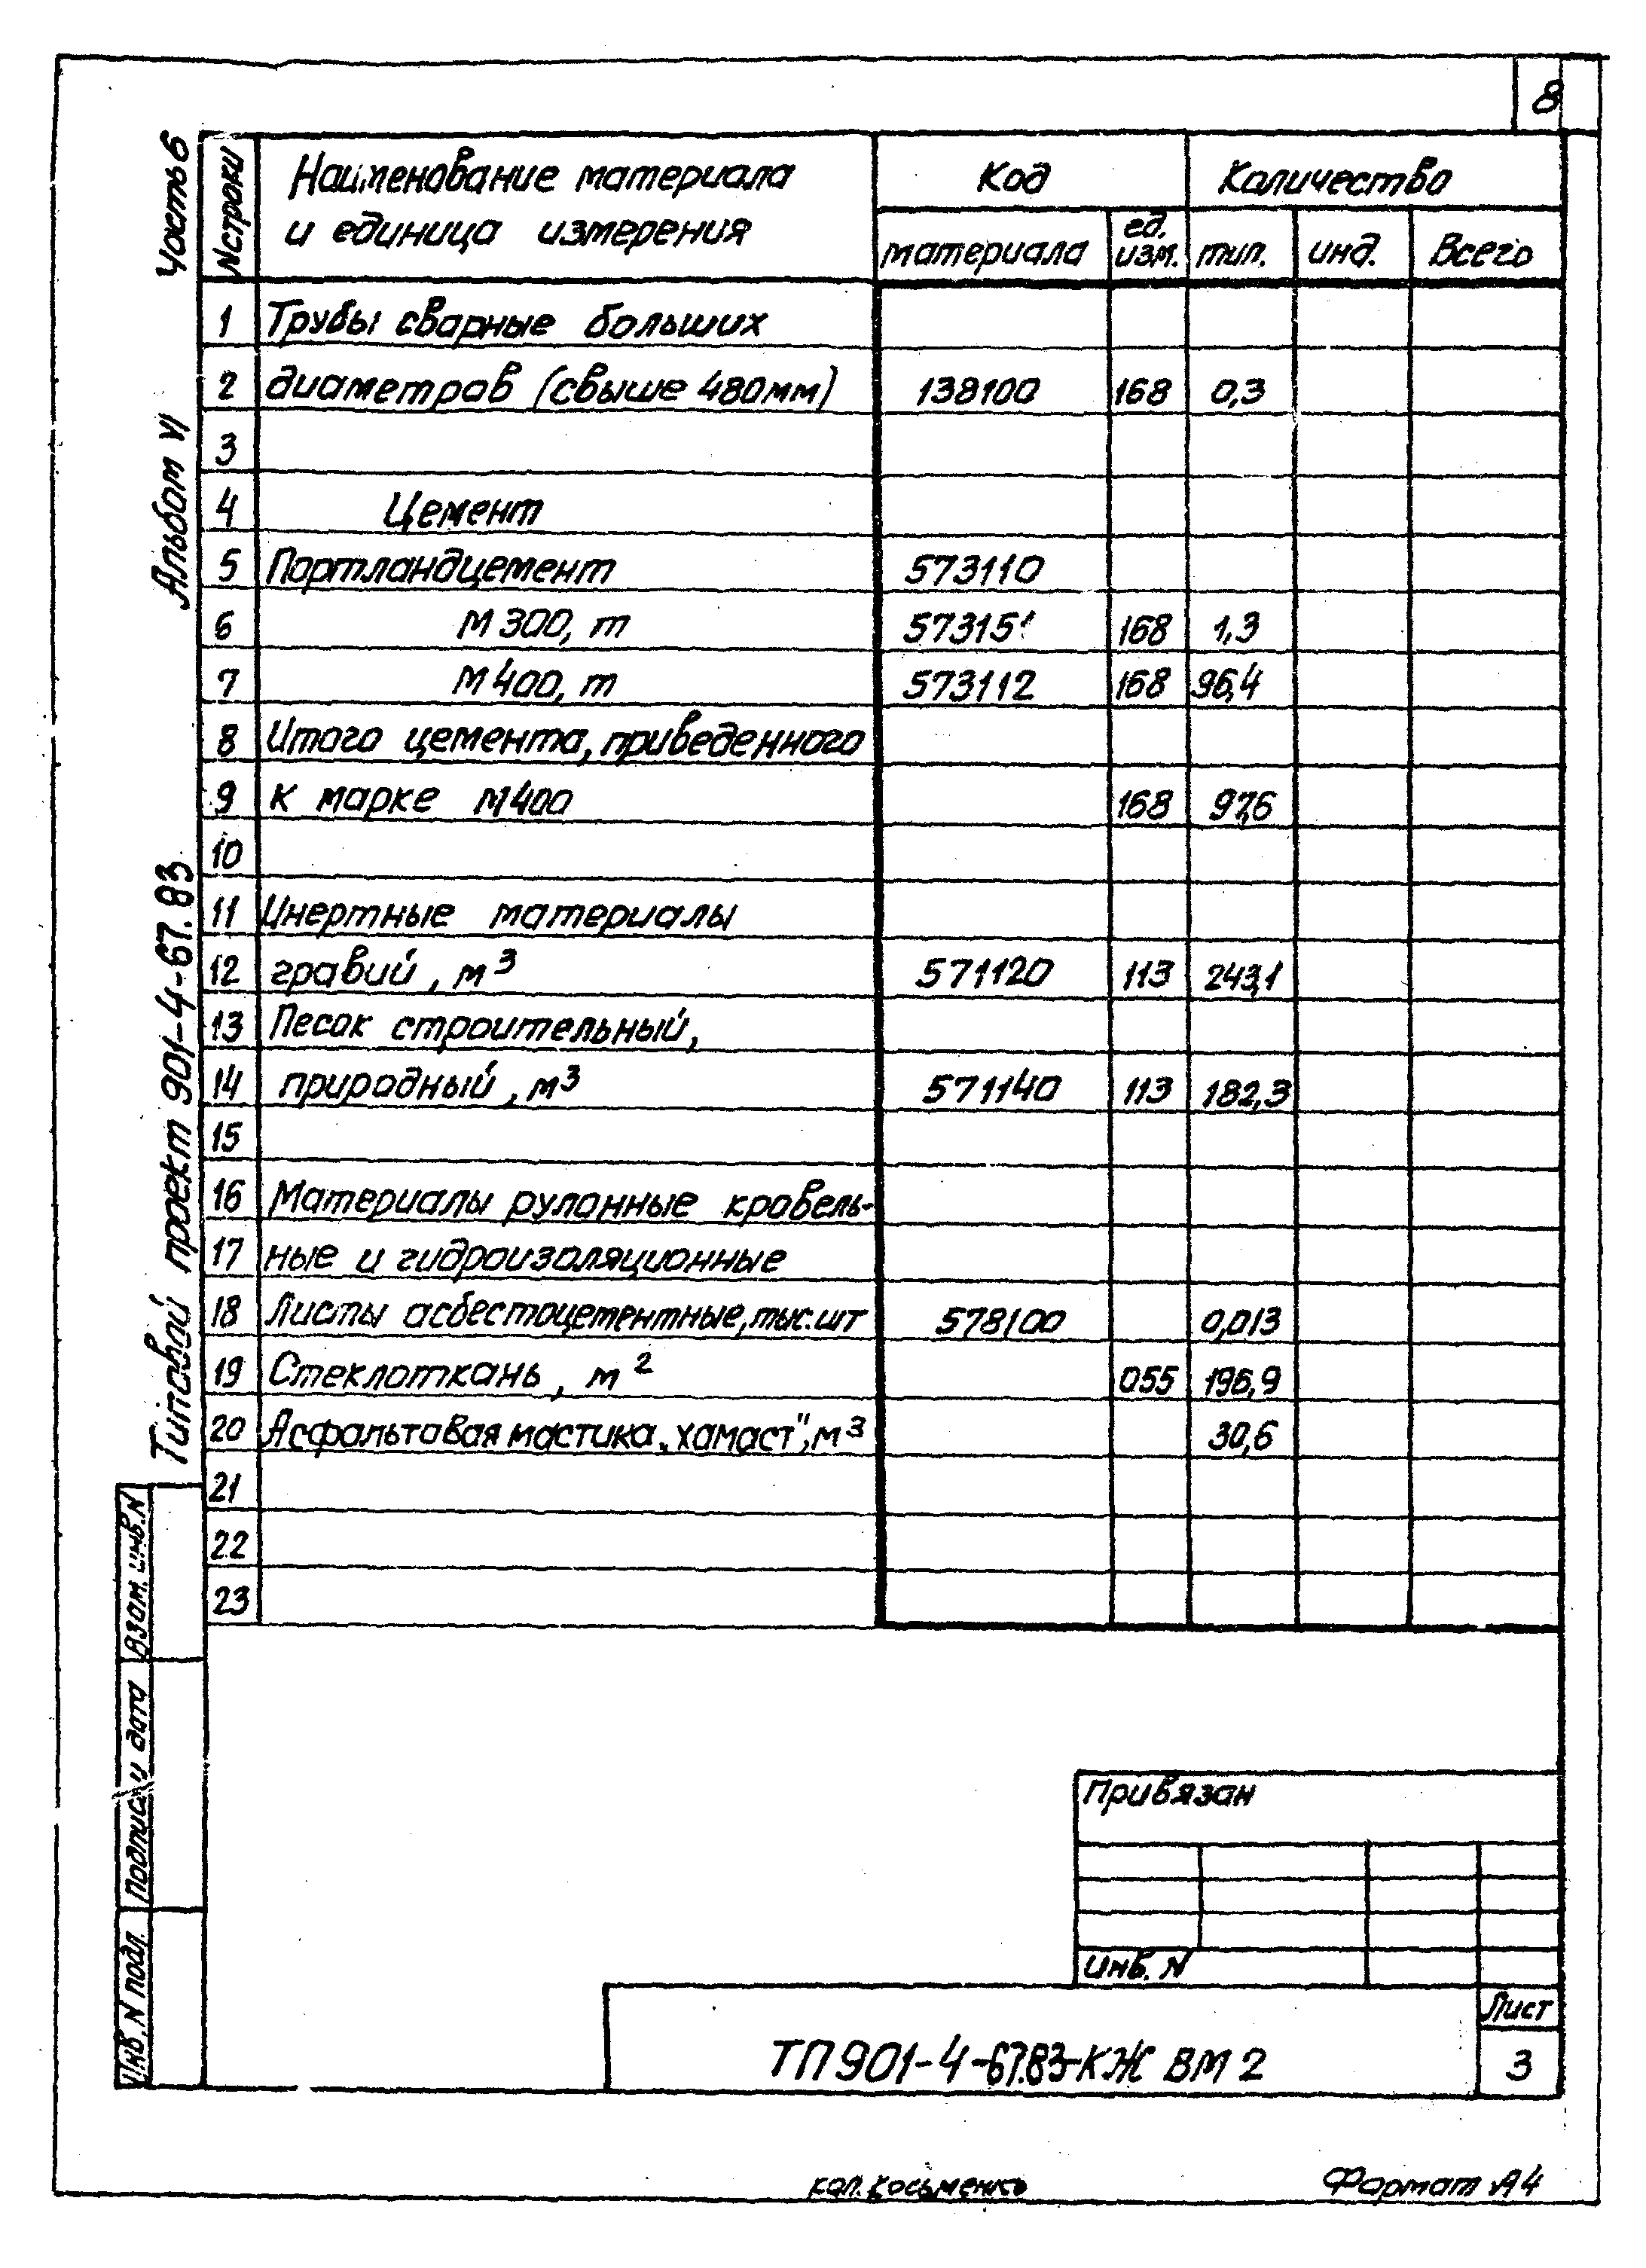 8
Часть 6
Альбом VI
Типовой проект 901-4-67.83
N строки
Наименование материала
и единица измерения
Код
Количество
материала
ед. изм.
тип.
инд.
Всего
1 Трубы сварные больших
2 диаметров (свыше 480мм) 138100 168 0,3
3
4 Цемент
5 Портландцемент 573110
6 М 300, т 573151 168 1,3
7 М 400, т 573112 168 96,4
8 Итого цемента, приведенного
9 к марке М400 168 97,6
10
11 Инертные материалы
12 гравий, м³ 571120 113 243,1
13 Песок строительный,
14 природный, м³ 571140 113 182,3
15
16 Материалы рулонные кровель-
17 ные и гидроизоляционные
18 Листы асбестоцементные, тыс.шт 578100 0,013
19 Стеклоткань, м² 055 196,9
20 Асфальтовая мастика „хамаст", м³ 30,6
21
22
23
Взам. инв. N
Подпись и дата
Инв. N подл.
Привязан
Инв. N
ТП 901-4-67.83-КЖ ВМ 2
Лист
3
кап. Косьменко
Формат А4